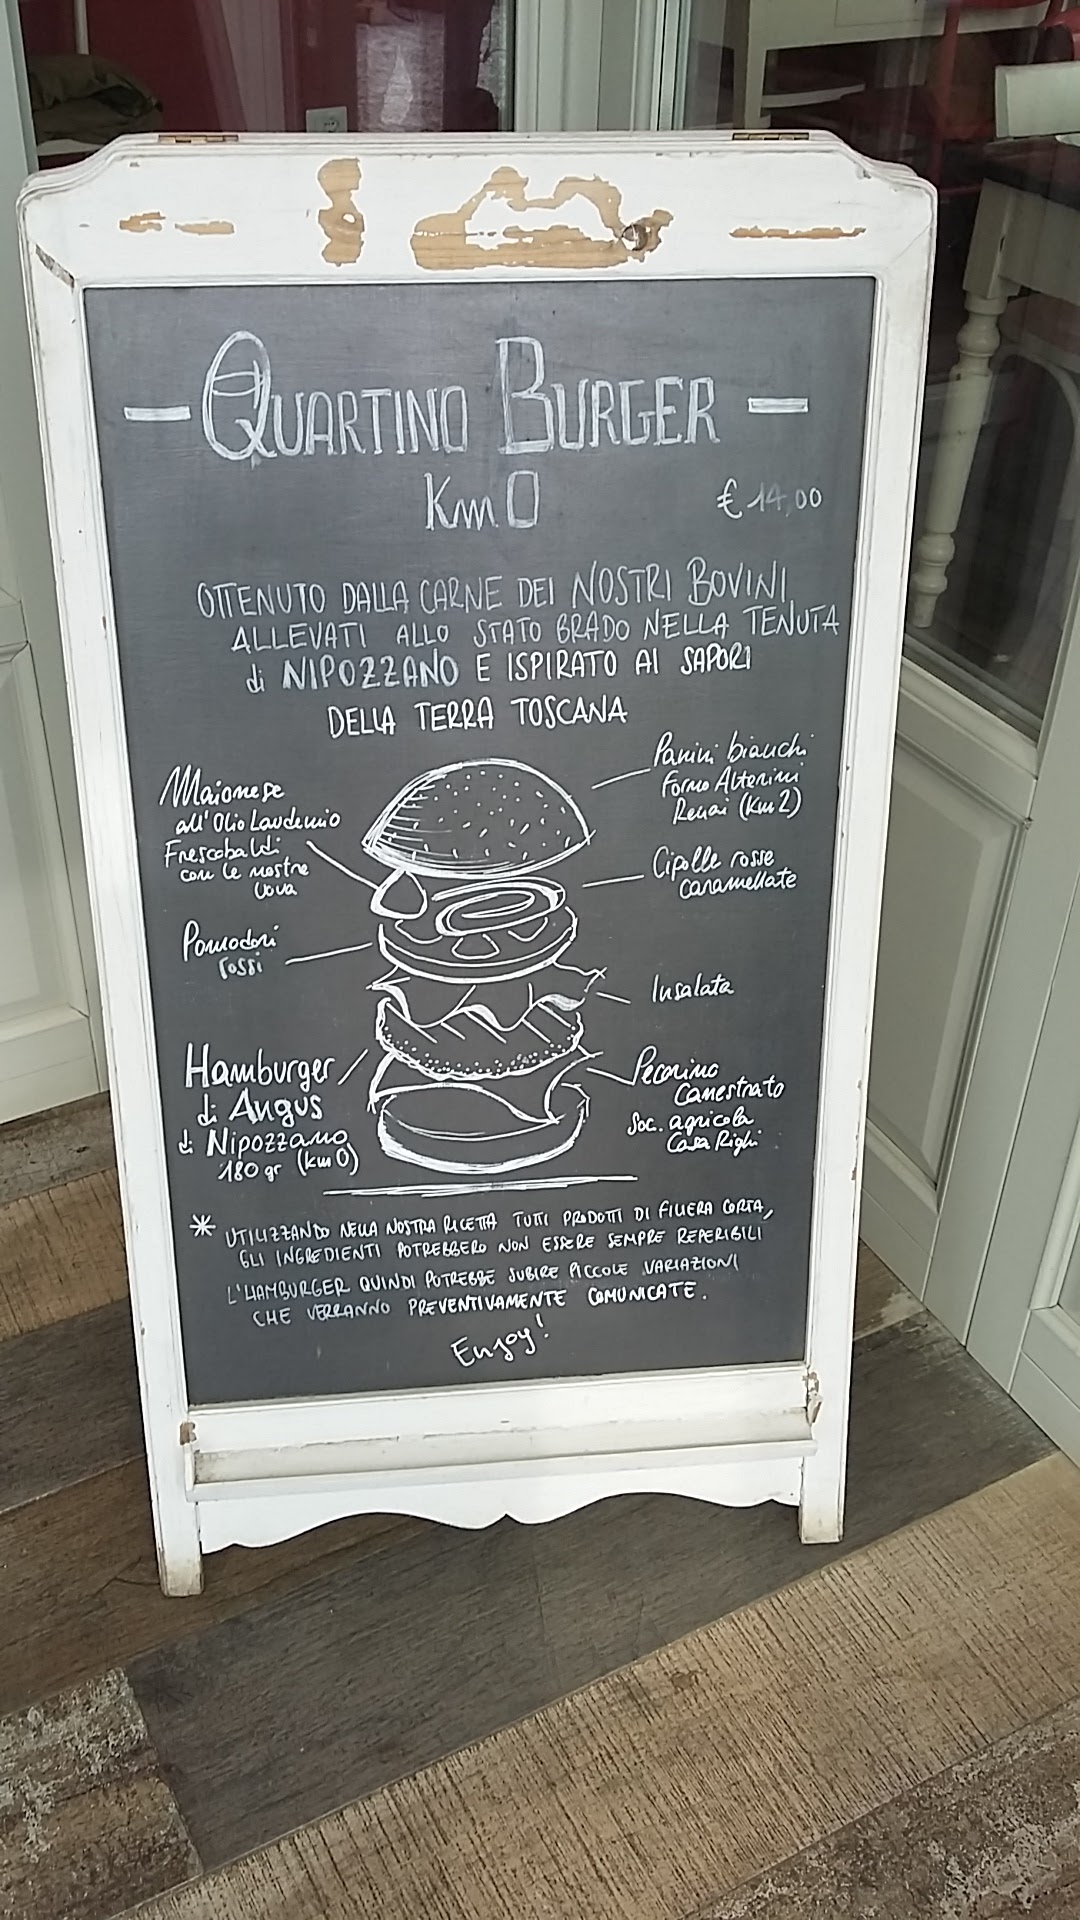 QUARTINO BURGER
Km 0
€ 14,00
OTTENUTO DALLA CARNE DEI NOSTRI BOVINI
ALLEVATI ALLO STATO BRADO NELLA TENUTA
di NIPOZZANO E ISPIRATO AI SAPORI
DELLA TERRA TOSCANA
Maionese
all'Olio Laudemio
Frescobaldi
con le nostre
uova
Panini bianchi
Forno
Renai (Km 2)
Cipolle rosse
caramellate
Pomodori
rossi
Insalata
Hamburger
di Angus
di Nipozzano
180 gr (km 0)
Pecorino
Canestrato
Soc. agricola
Casa Righi
* UTILIZZANDO NELLA NOSTRA RICETTA TUTTI PRODOTTI DI FILIERA CORTA,
GLI INGREDIENTI POTREBBERO NON ESSERE SEMPRE REPERIBILI
L'HAMBURGER QUINDI POTREBBE SUBIRE PICCOLE VARIAZIONI
CHE VERRANNO PREVENTIVAMENTE COMUNICATE.
Enjoy!